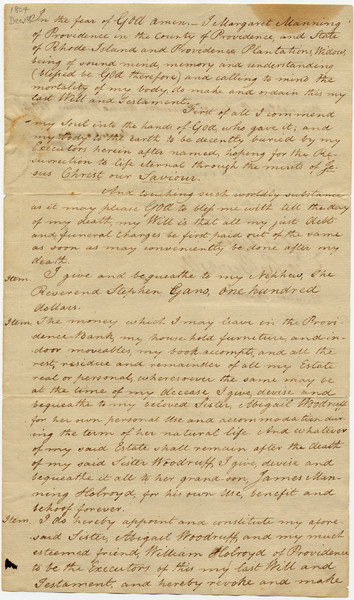 1804
In the fear of GOD amen — I Margaret Manning
of Providence in the County of Providence, and State
of Rhode-Island and Providence Plantations, Widow,
being of sound mind, memory and understanding
(blessed be God therefore) and calling to mind the
mortality of my body, do make and ordain this my
last Will and Testament.
First of all I commend
my Soul into the hands of GOD, who gave it; and
my body to the earth to be decently buried by my
Executors herein after named, hoping for the Re-
surrection to life eternal through the merits of Je-
sus Christ our Saviour.
And touching such worldly substance
as it may please GOD to bless me with till the day
of my death, my Will is that all my just Debt
and funeral Charges be first paid out of the same
as soon as may conveniently be done after my
death.
Item. I give and bequeathe to my Nephew, the
Reverend Stephen Gano, one hundred
dollars.
Item. The money which I may leave in the Provi-
dence-Bank, my house hold furneture, and in-
door moveables, my book accompts, and all the
rest, residue and remainder of all my Estate
real or personal, wheresoever the same may be
at the time of my decease I give, devise and
bequeathe to my beloved Sister, Abigail Woodruff
for her own personal Use and accommodation dur-
ing the term of her natural life. And whatever
of my said Estate shall remain after the death
of my said Sister Woodruff, I give, devise and
bequeathe it all to her grand son, James Man-
ning Holroyd, for his own Use, benefit and
behoof forever.
Item. I do hereby appoint and constitute my afore-
said Sister, Abigail Woodruff, and my much
esteemed friend, William Holroyd of Providence
to be the Executors of this my last Will and
Testament, and hereby revoke and make